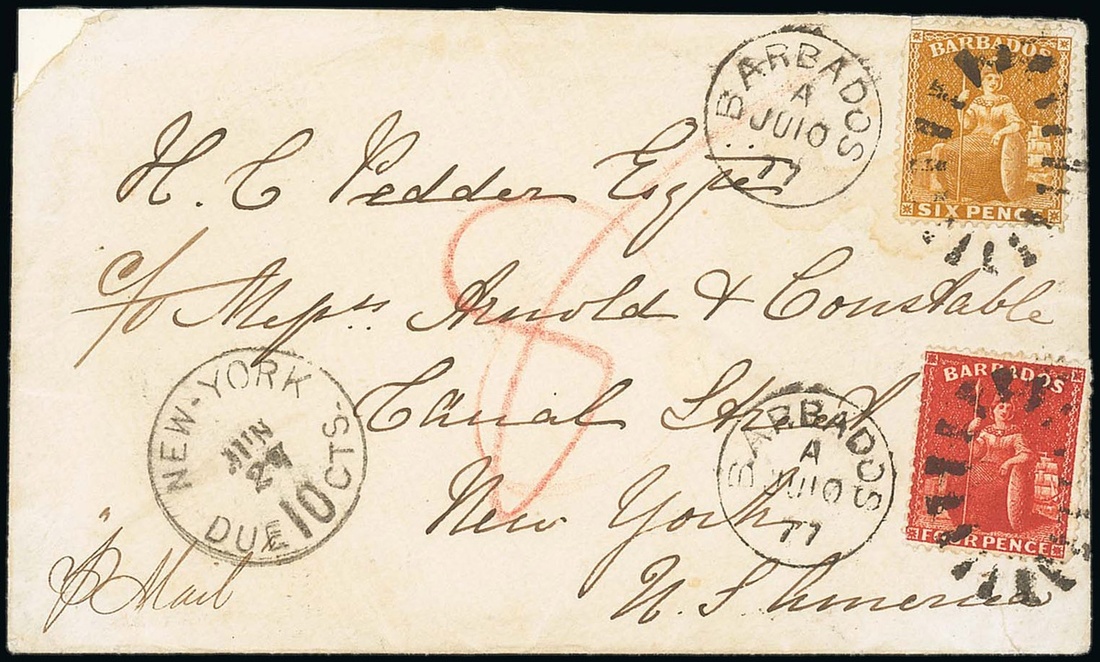 BARBADOS
SIX PENCE
BARBADOS
A
JU10
77
H. C Pedder Esqre
c/o Messrs Arnold & Constable
Canal Street
New York
U. S. America
8
BARBADOS
FOUR PENCE
BARBADOS
A
JU10
77
NEW-YORK
JUN
DUE 10 CTS.
p Mail